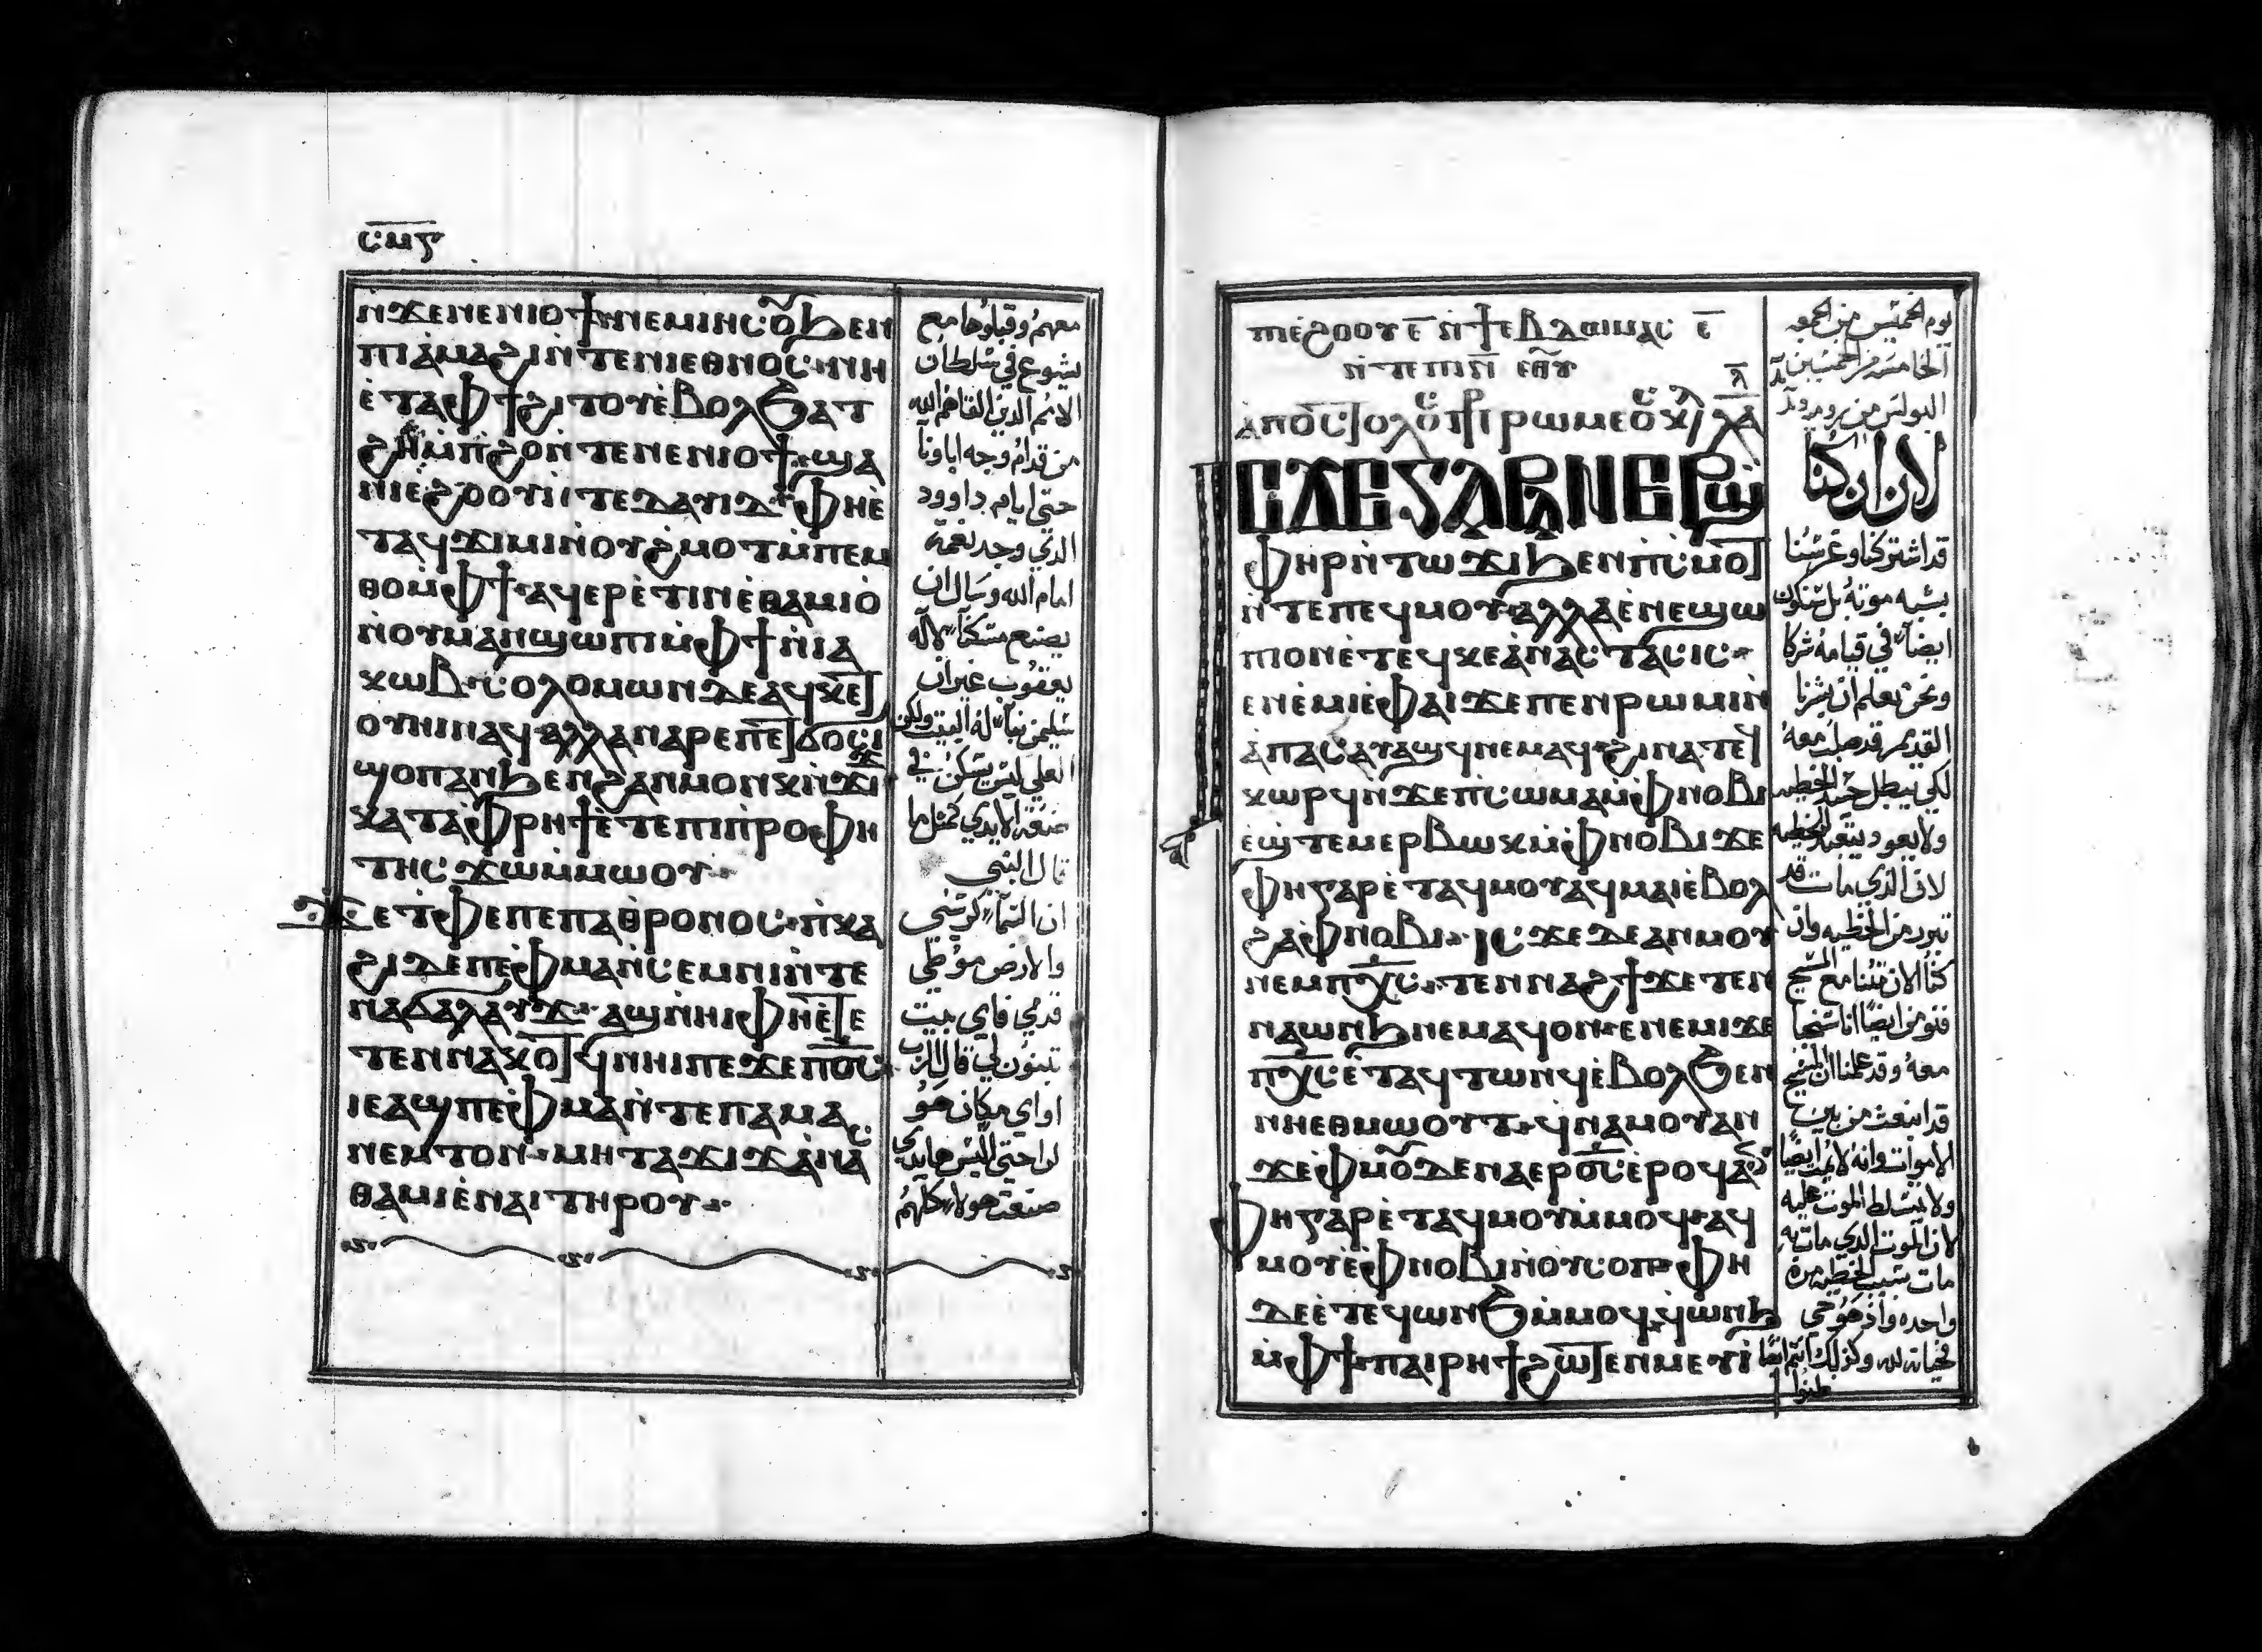 ⲥⲙⲋ
ⲛ̀ϫⲉⲛⲉⲛⲓⲟϯ ⲛⲉⲙ ⲓⲏⲥⲟ̅ ϧⲉⲛ
ⲡⲓⲁ̀ⲙⲁϩⲓ ⲛ̀ⲧⲉⲛⲓⲉⲑⲛⲟⲥ ⲛⲏ
ⲉ̀ⲧⲁⲫϯ ϩⲓⲧⲟⲩ ⲉ̀ⲃⲟⲗ ϧⲁⲧ
ϩⲏ ⲙ̀ⲡϩⲟ ⲛ̀ⲧⲉⲛⲉⲛⲓⲟϯ ϣⲁ
ⲛⲓⲉϩⲟⲟⲩ ⲛ̀ⲧⲉⲇⲁⲩⲓⲇ ⲫⲏⲉ̀
ⲧⲁϥϫⲓⲙⲓ ⲛ̀ⲟⲩϩⲙⲟⲧ ⲙ̀ⲡⲉⲙ
ⲑⲟ ⲙ̀ⲫϯ ⲁϥⲉⲣⲉ̀ⲧⲓⲛ ⲉ̀ⲑⲁⲙⲓⲟ̀
ⲛ̀ⲟⲩⲙⲁⲛϣⲱⲡⲓ ⲙ̀ⲫϯ ⲛ̀ⲓⲁ
ⲕⲱⲃ ⲥⲟⲗⲟⲙⲱⲛ ⲇⲉ ⲁϥⲕⲉⲧ
ⲟⲩⲏⲓ ⲛⲁϥ ⲁⲗⲗⲁ ⲛⲁⲣⲉⲡⲉⲧϭⲟⲥⲓ
ϣⲟⲡ ⲁⲛ ϧⲉⲛϩⲁⲛⲙⲟⲛⲕ ⲛ̀ϫⲓϫ
ⲕⲁⲧⲁⲫⲣⲏϯ ⲉ̀ⲧⲉⲡⲓⲡⲣⲟⲫⲏ
ⲧⲏⲥ ϫⲱ ⲙ̀ⲙⲱⲟⲩ
ϫⲉ ⲧ̀ⲫⲉ ⲡⲉ ⲡⲁⲑⲣⲟⲛⲟⲥ ⲡ̀ⲕⲁ
ϩⲓ ⲇⲉ ⲡⲉ ⲫ̀ⲙⲁ ⲛ̀ⲥⲉⲙⲛⲓ ⲛ̀ⲧⲉ
ⲛⲁϭⲁⲗⲁⲩϫ ⲁϣ ⲛ̀ⲏⲓ ⲫⲏⲉ̀ⲧⲉ
ⲧⲉⲛⲛⲁⲕⲟⲧϥ ⲛⲏⲓ ⲡⲉϫⲉ ⲡⲟ̅ⲥ̅
ⲓⲉ ⲁϣ ⲡⲉ ⲫ̀ⲙⲁ ⲛ̀ⲧⲉⲡⲁⲙⲁ
ⲛⲉⲙⲧⲟⲛ ⲙⲏ ⲧⲁϫⲓϫ ⲁ̀ⲛⲁⲥ
ⲑⲁⲙⲓⲉ̀ ⲛⲁⲓ ⲧⲏⲣⲟⲩ
معهم وقبلوها مع
يشوع في سلطان
الامم الذين القاهم الله
من قدام وجه اباونا
حتي ايام داوود
الذي وجد نعمة
امام الله وسال ان
يصنع مسكنا لاله
يعقوب غير ان
سليمن بنا له البيت ولكن
العلي ليس يسكن في
صنعة الايدي كمثل ما
قال النبي
ان السما كرسي
والارض موطي
قدمي فاي بيت
تبنون لي قال الرب
او اي مكان هو
لراحتي اليس هايدي
صنعت هولا كلهم
ⲡⲓⲉ̀ϩⲟⲟⲩ ⲉ̅ ⲛ̀ϯⲉⲃⲇⲟⲙⲁⲥ ⲉ̅
ⲛ̀ⲧⲉⲡⲓⲛ̅ ⲉⲑⲩ
ⲁⲡⲟⲥⲧⲟⲗⲟⲥ ⲡⲣ ⲣⲱⲙⲉⲟⲥ ⲕⲉ ⲗ̅
ⲓⲥϫⲉ ⲅⲁⲣ ⲁⲛⲉⲣϣ
ⲫⲏⲣ ⲛ̀ⲧⲱϫⲓ ϧⲉⲛⲡ̀ⲥⲙⲟⲧ
ⲛ̀ⲧⲉⲡⲉϥⲙⲟⲩ ⲁⲗⲗⲁ ⲉ̀ⲛⲉϣⲱ
ⲡⲓ ⲟⲛ ⲉ̀ⲧⲉϥⲕⲉⲁ̀ⲛⲁⲥⲧⲁⲥⲓⲥ
ⲉⲛⲉ̀ⲙⲓ ⲉ̀ⲫⲁⲓ ϫⲉ ⲡⲉⲛⲣⲱⲙⲓ ⲛ̀
ⲁⲡⲁⲥ ⲁⲩⲁϣϥ ⲛⲉⲙⲁϥ ϩⲓⲛⲁ ⲛ̀ⲧⲉϥ
ⲕⲱⲣϥ ⲛ̀ϫⲉⲡⲓⲥⲱⲙⲁ ⲙ̀ⲫⲛⲟⲃⲓ
ⲉ̀ϣⲧⲉⲙⲉⲣⲃⲱⲕ ⲙ̀ⲫⲛⲟⲃⲓ ϫⲉ
ⲫⲏ ⲅⲁⲣ ⲉ̀ⲧⲁϥⲙⲟⲩ ⲁϥⲙⲁⲓ ⲉ̀ⲃⲟⲗ
ϩⲁⲫⲛⲟⲃⲓ ⲓⲥϫⲉ ⲇⲉ ⲁⲛⲙⲟⲩ
ⲛⲉⲙⲡⲭ̅ⲥ̅ ⲧⲉⲛⲛⲁϩϯ ϫⲉ ⲧⲉⲛ
ⲛⲁⲱⲛϧ ⲛⲉⲙⲁϥ ⲟⲛ ⲉⲛⲉⲙⲓ ϫⲉ
ⲡⲭ̅ⲥ̅ ⲉ̀ⲧⲁϥⲧⲱⲛϥ ⲉ̀ⲃⲟⲗ ϧⲉⲛ
ⲛⲏⲉⲑⲙⲱⲟⲩⲧ ϥ̀ⲛⲁⲙⲟⲩ ⲁⲛ
ϫⲉ ⲫ̀ⲙⲟ̅ ⲇⲉ ⲛⲁⲉⲣⲟ̅ⲥ̅ ⲉ̀ⲣⲟϥ ⲁⲛ
ⲫⲏ ⲅⲁⲣ ⲉ̀ⲧⲁϥⲙⲟⲩ ⲙ̀ⲙⲟϥ ⲁϥ
ⲙⲟⲩ ⲉ̀ⲫⲛⲟⲃⲓ ⲛ̀ⲟⲩⲥⲟⲡ ⲫⲏ
ⲇⲉ ⲉ̀ⲧⲉϥⲱⲛϧ ⲙ̀ⲙⲟϥ ϥ̀ⲱⲛϧ
ⲙ̀ⲫϯ ⲡⲁⲓⲣⲏϯ ϩⲱⲧⲉⲛ ⲙⲉⲩⲓ
يوم الخميس من الجمعه
الخامسه من الخمسين
البولس من روميه
لان ان كنا
قد اشتركنا وغرسنا
بشبه موته بل نكون
ايضا في قيامه شركا
ونحن نعلم ان بشرنا
القديم قد صلب معه
لكي يبطل جسد الخطيه
ولا يعود يتعبد للخطيه
لان الذي مات قد
تبرر من الخطيه وان
كنا الان متنا مع المسيح
فنومن ايضا انا سنحيا
معه وقد علمنا ان المسيح
قد انبعث من بين
الاموات وانه لا يموت ايضا
ولا يتسلط الموت عليه
لان الموت الذي مات به
مات بسبب الخطيه مرة
واحده واذ هو حي
فحياته لله وكذلك انتم ايضا
ظنوا